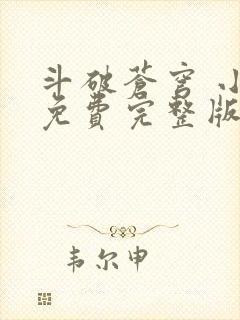 斗破苍穹 小
免費完整版
韦尔申